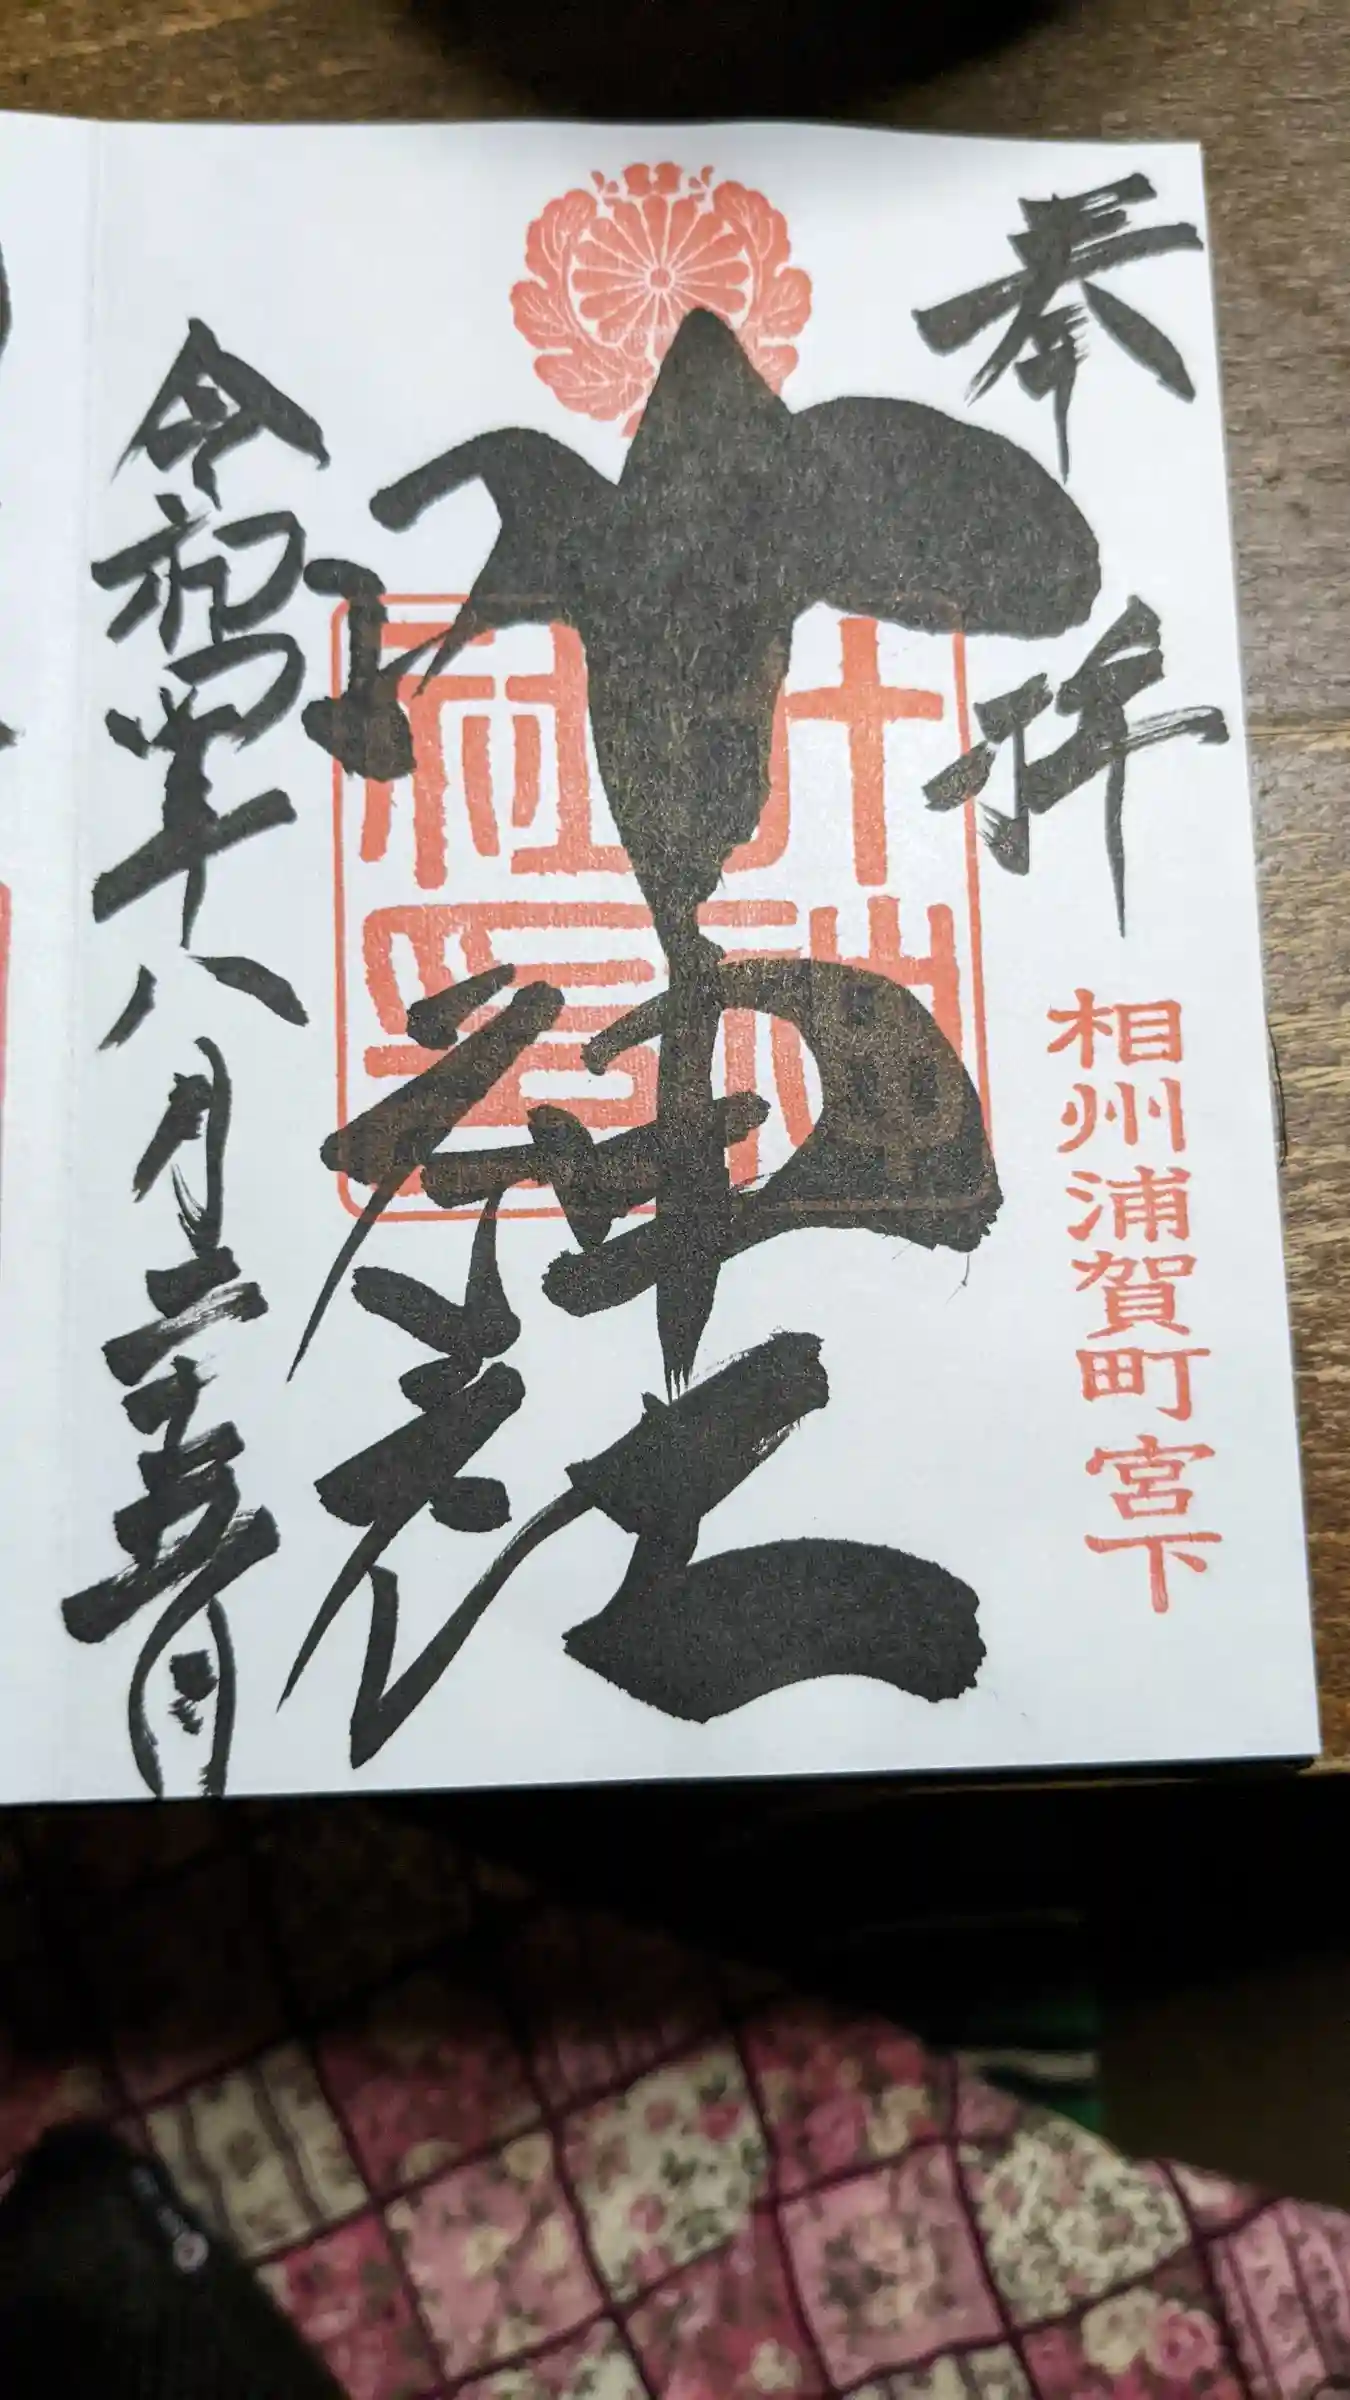 奉拝
相州浦賀町宮下
叶神社
叶神
社印
令和四年八月二十五日